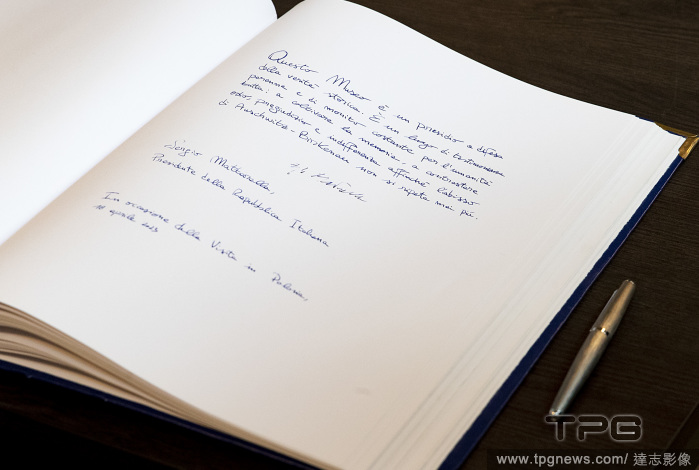 Questo Museo è un presidio a difesa
della verità storica. È un luogo di testimonianza
perenne e di monito costante per l'umanità
tutta: a coltivare la memoria, a contrastare
odio, pregiudizio e indifferenza affinché l'abisso
di Auschwitz-Birkenau non si ripeta mai più.
Sergio Mattarella
Presidente della Repubblica Italiana
In occasione della Visita in Polonia,
aprile 2023
TPG
www.tpgnews.com/ 達志影像